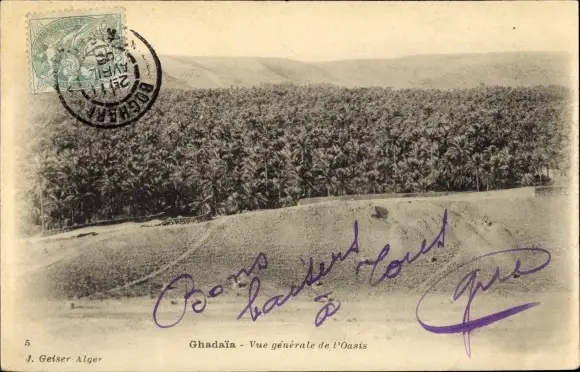 BOGHARI
Bons baisers à tous
5
Ghadaïa - Vue générale de l'Oasis
J. Geiser Alger